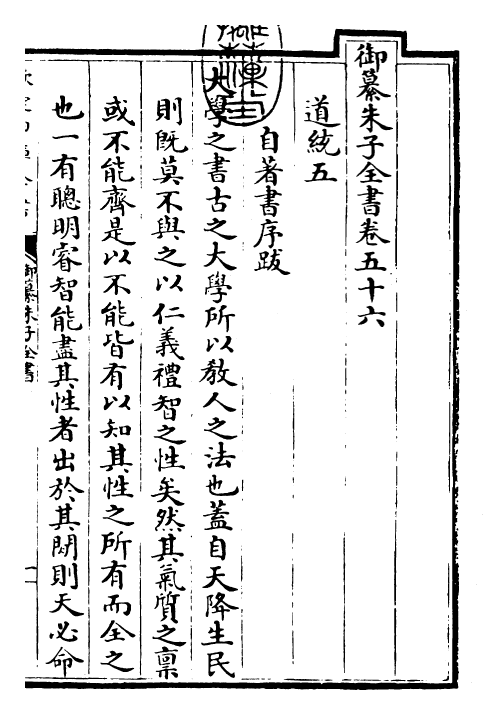 御纂朱子全書卷五十六
道統五
自著書序跋
大學之書古之大學所以敎人之法也蓋自天降生民
則既莫不與之以仁義禮智之性矣然其氣質之禀
或不能齊是以不能皆有以知其性之所有而全之
也一有聰明睿智能盡其性者出於其閒則天必命
御纂朱子全書